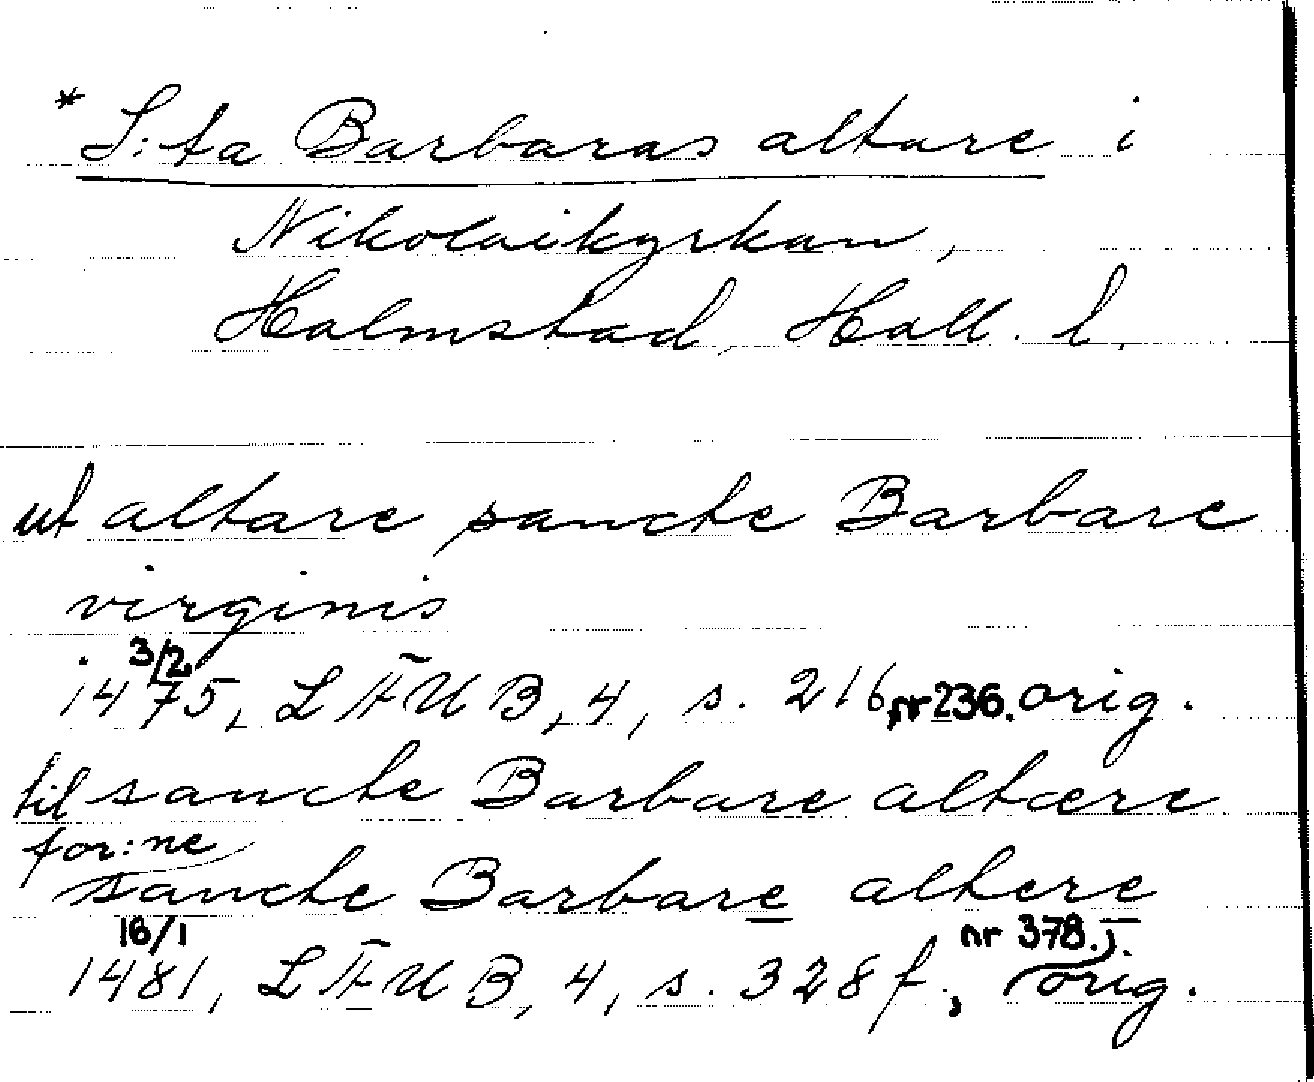 * S:ta Barbaras altare i
Nikolaikyrkan,
Halmstad, Hall. l.
ut altare sancte Barbare
virginis
3/2
1475, LÄUB, 4, s. 216, nr 236. orig.
til sancte Barbare altære
for:ne
sancte Barbare altere
16/1 nr 378.
1481, LÄUB, 4, s. 328 f., orig.